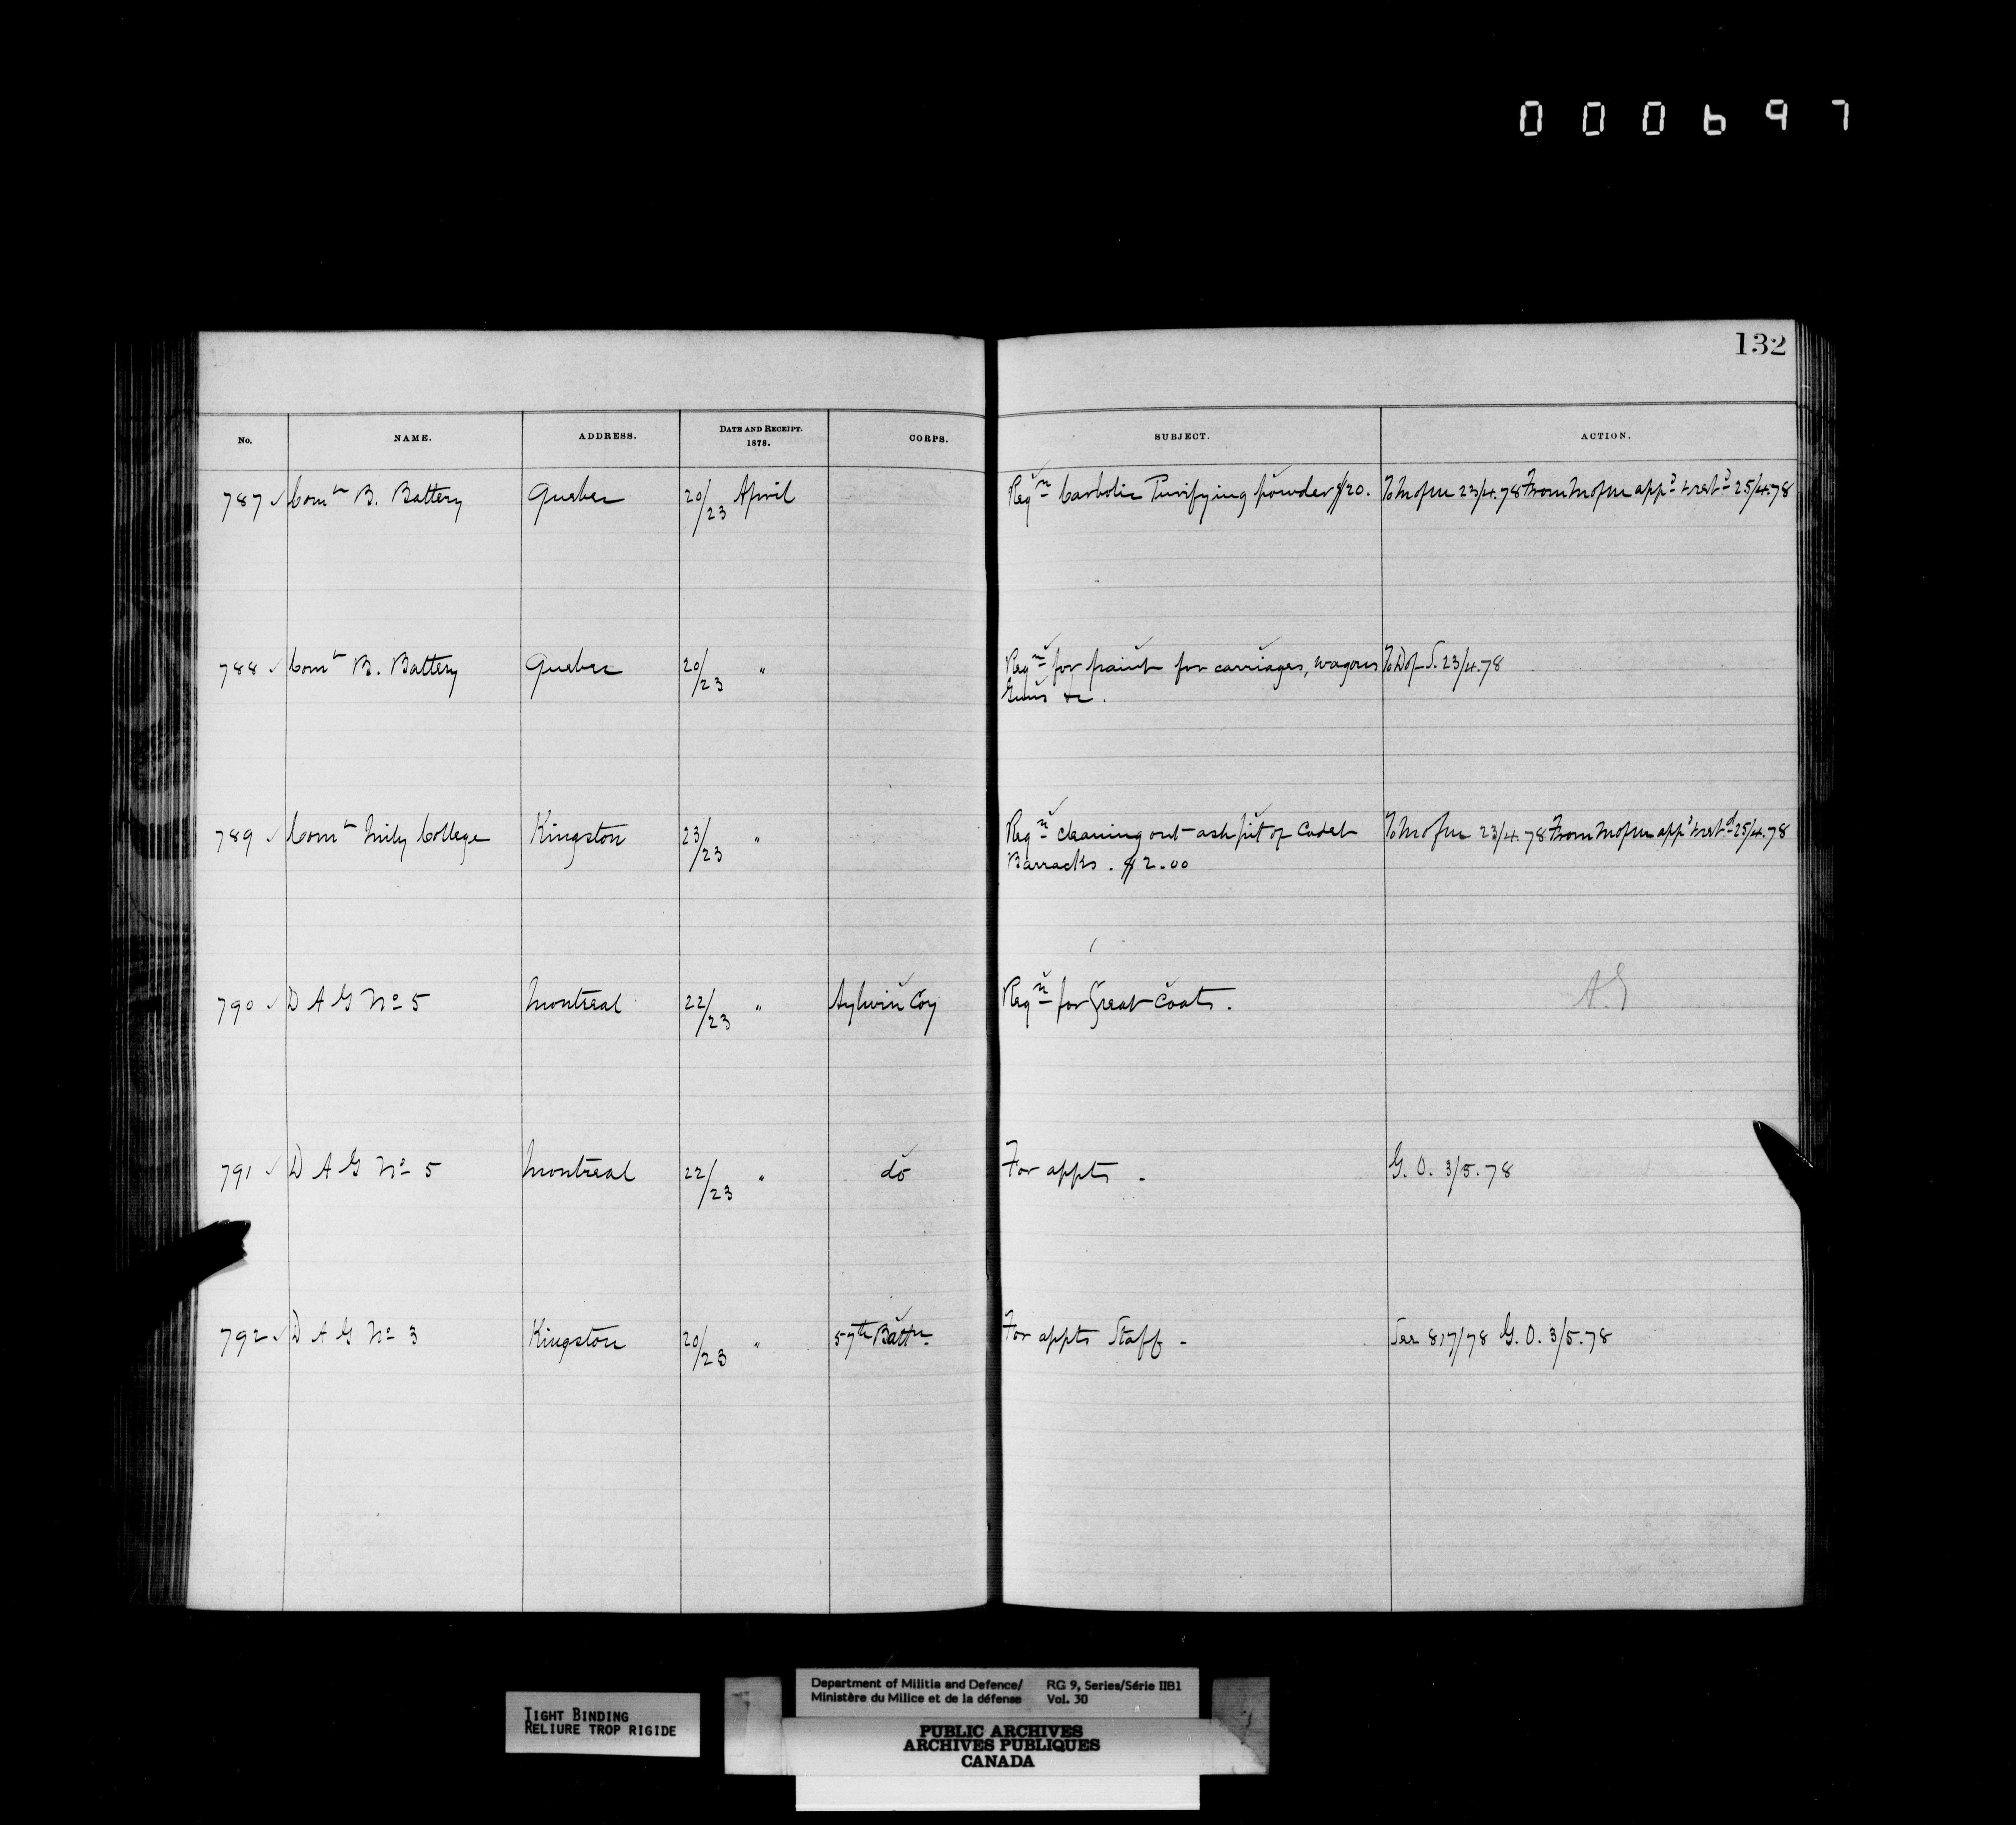 000697
132
No. NAME. ADDRESS. DATE AND RECEIPT. 1878. CORPS. SUBJECT. ACTION.
787 ✓ Comt B. Battery Quebec 20/23 April Reqn Carbolic Purifying powder $20. To M of M 23/4.78 From M of M appd & retd 25/4.78
788 ✓ Comt B. Battery Quebec 20/23 " Reqn for paint for carriages, wagons To D of S. 23/4.78
Guns &c.
789 ✓ Comt Mily College Kingston 23/23 " Reqn cleaning out ash pit of Cadet To M of M 23/4.78 From M of M appd & retd 25/4.78
Barracks. $2.00
790 ✓ D A G No 5 Montreal 22/23 " Aylwin Coy Reqn for Great Coats. A.G
791 ✓ D A G No 5 Montreal 22/23 " do For appts. G.O. 3/5.78
792 ✓ D A G No 3 Kingston 20/23 " 57th Battn. For appts Staff - See 817/78 G.O. 3/5.78
TIGHT BINDING
RELIURE TROP RIGIDE
Department of Militia and Defence/ RG 9, Series/Série IIB1
Ministère du Milice et de la défense Vol. 30
PUBLIC ARCHIVES
ARCHIVES PUBLIQUES
CANADA